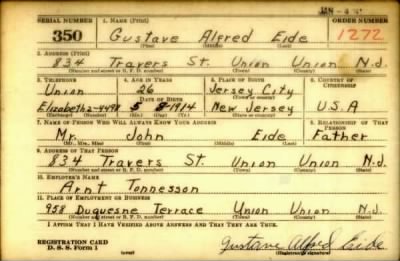 SERIAL NUMBER 1. NAME (Print) ORDER NUMBER
350 Gustave Alfred Eide 1272
(First) (Middle) (Last)
2. ADDRESS (Print)
834 Travers St. Union Union N.J.
(Number and street or R. F. D. number) (Town) (County) (State)
3. TELEPHONE 4. AGE IN YEARS 5. PLACE OF BIRTH 6. COUNTRY OF CITIZENSHIP
Union 26 Jersey City
DATE OF BIRTH (Town or county)
Elizabeth2-4498 5 8 1914 New Jersey U.S.A
(Exchange) (Number) (Mo.) (Day) (Yr.) (State or country)
7. NAME OF PERSON WHO WILL ALWAYS KNOW YOUR ADDRESS 8. RELATIONSHIP OF THAT PERSON
Mr. John Eide Father
(Mr., Mrs., Miss) (First) (Middle) (Last)
9. ADDRESS OF THAT PERSON
834 Travers St. Union Union N.J.
(Number and street or R. F. D. number) (Town) (County) (State)
10. EMPLOYER'S NAME
Arnt Tonnesson
11. PLACE OF EMPLOYMENT OR BUSINESS
958 Duquesne Terrace Union Union N.J.
(Number and street or R. F. D. number) (Town) (County) (State)
I AFFIRM THAT I HAVE VERIFIED ABOVE ANSWERS AND THAT THEY ARE TRUE.
REGISTRATION CARD
D. S. S. Form 1 Gustave Alfred Eide
(over) (Registrant's signature)